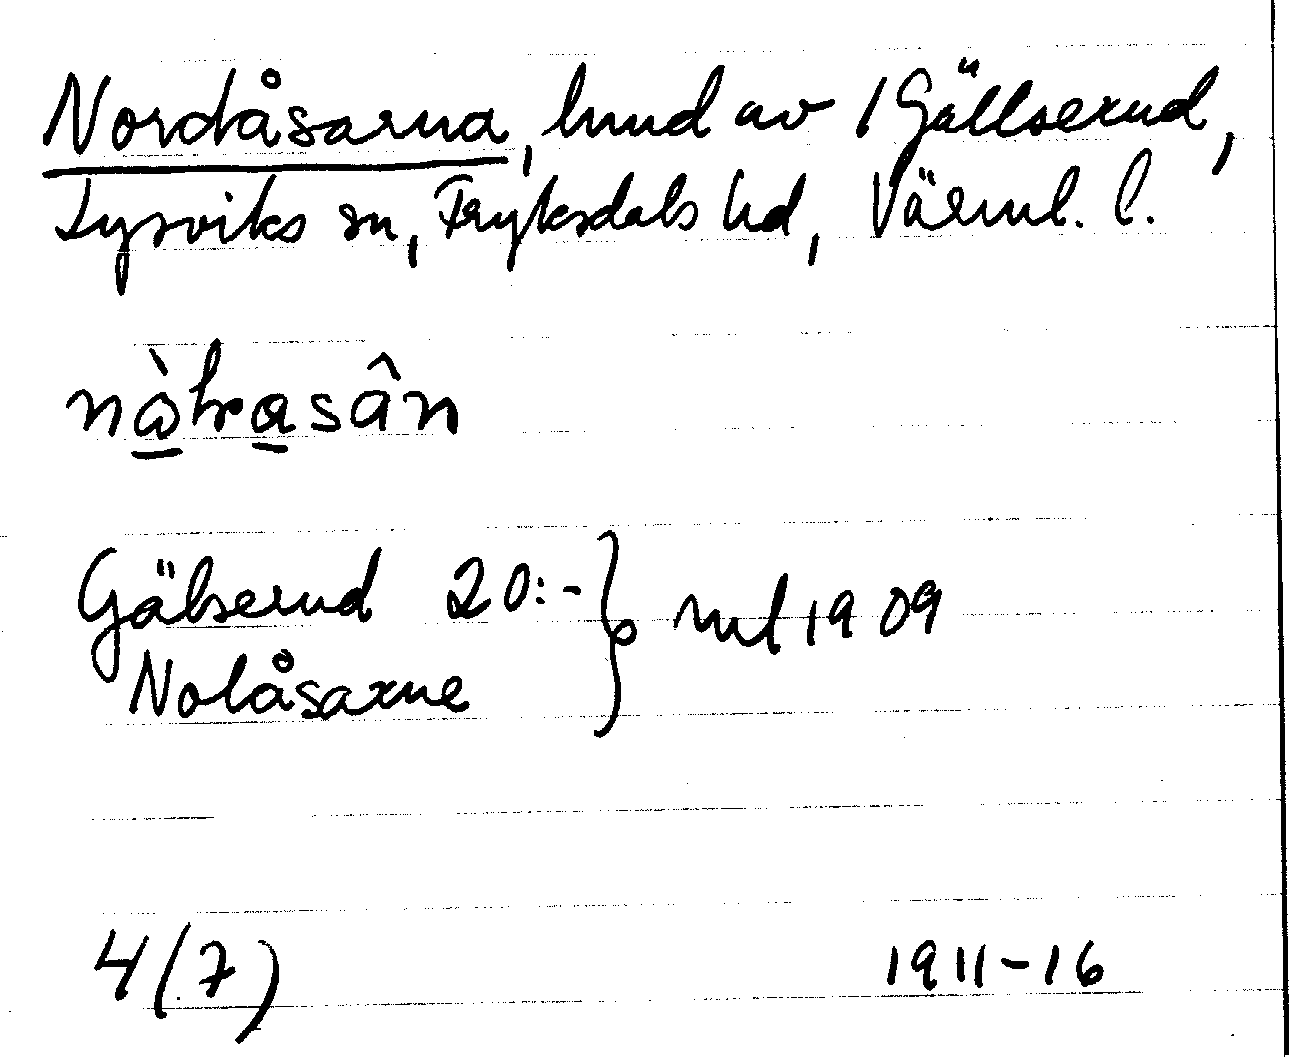 Nordåsarna, hmd av 1 Gällserud,
Lysviks sn, Fryksdals hd, Värml. l.
Gälserud 20:- } ml 1909
Nolåsarne
4(7) 1911-16